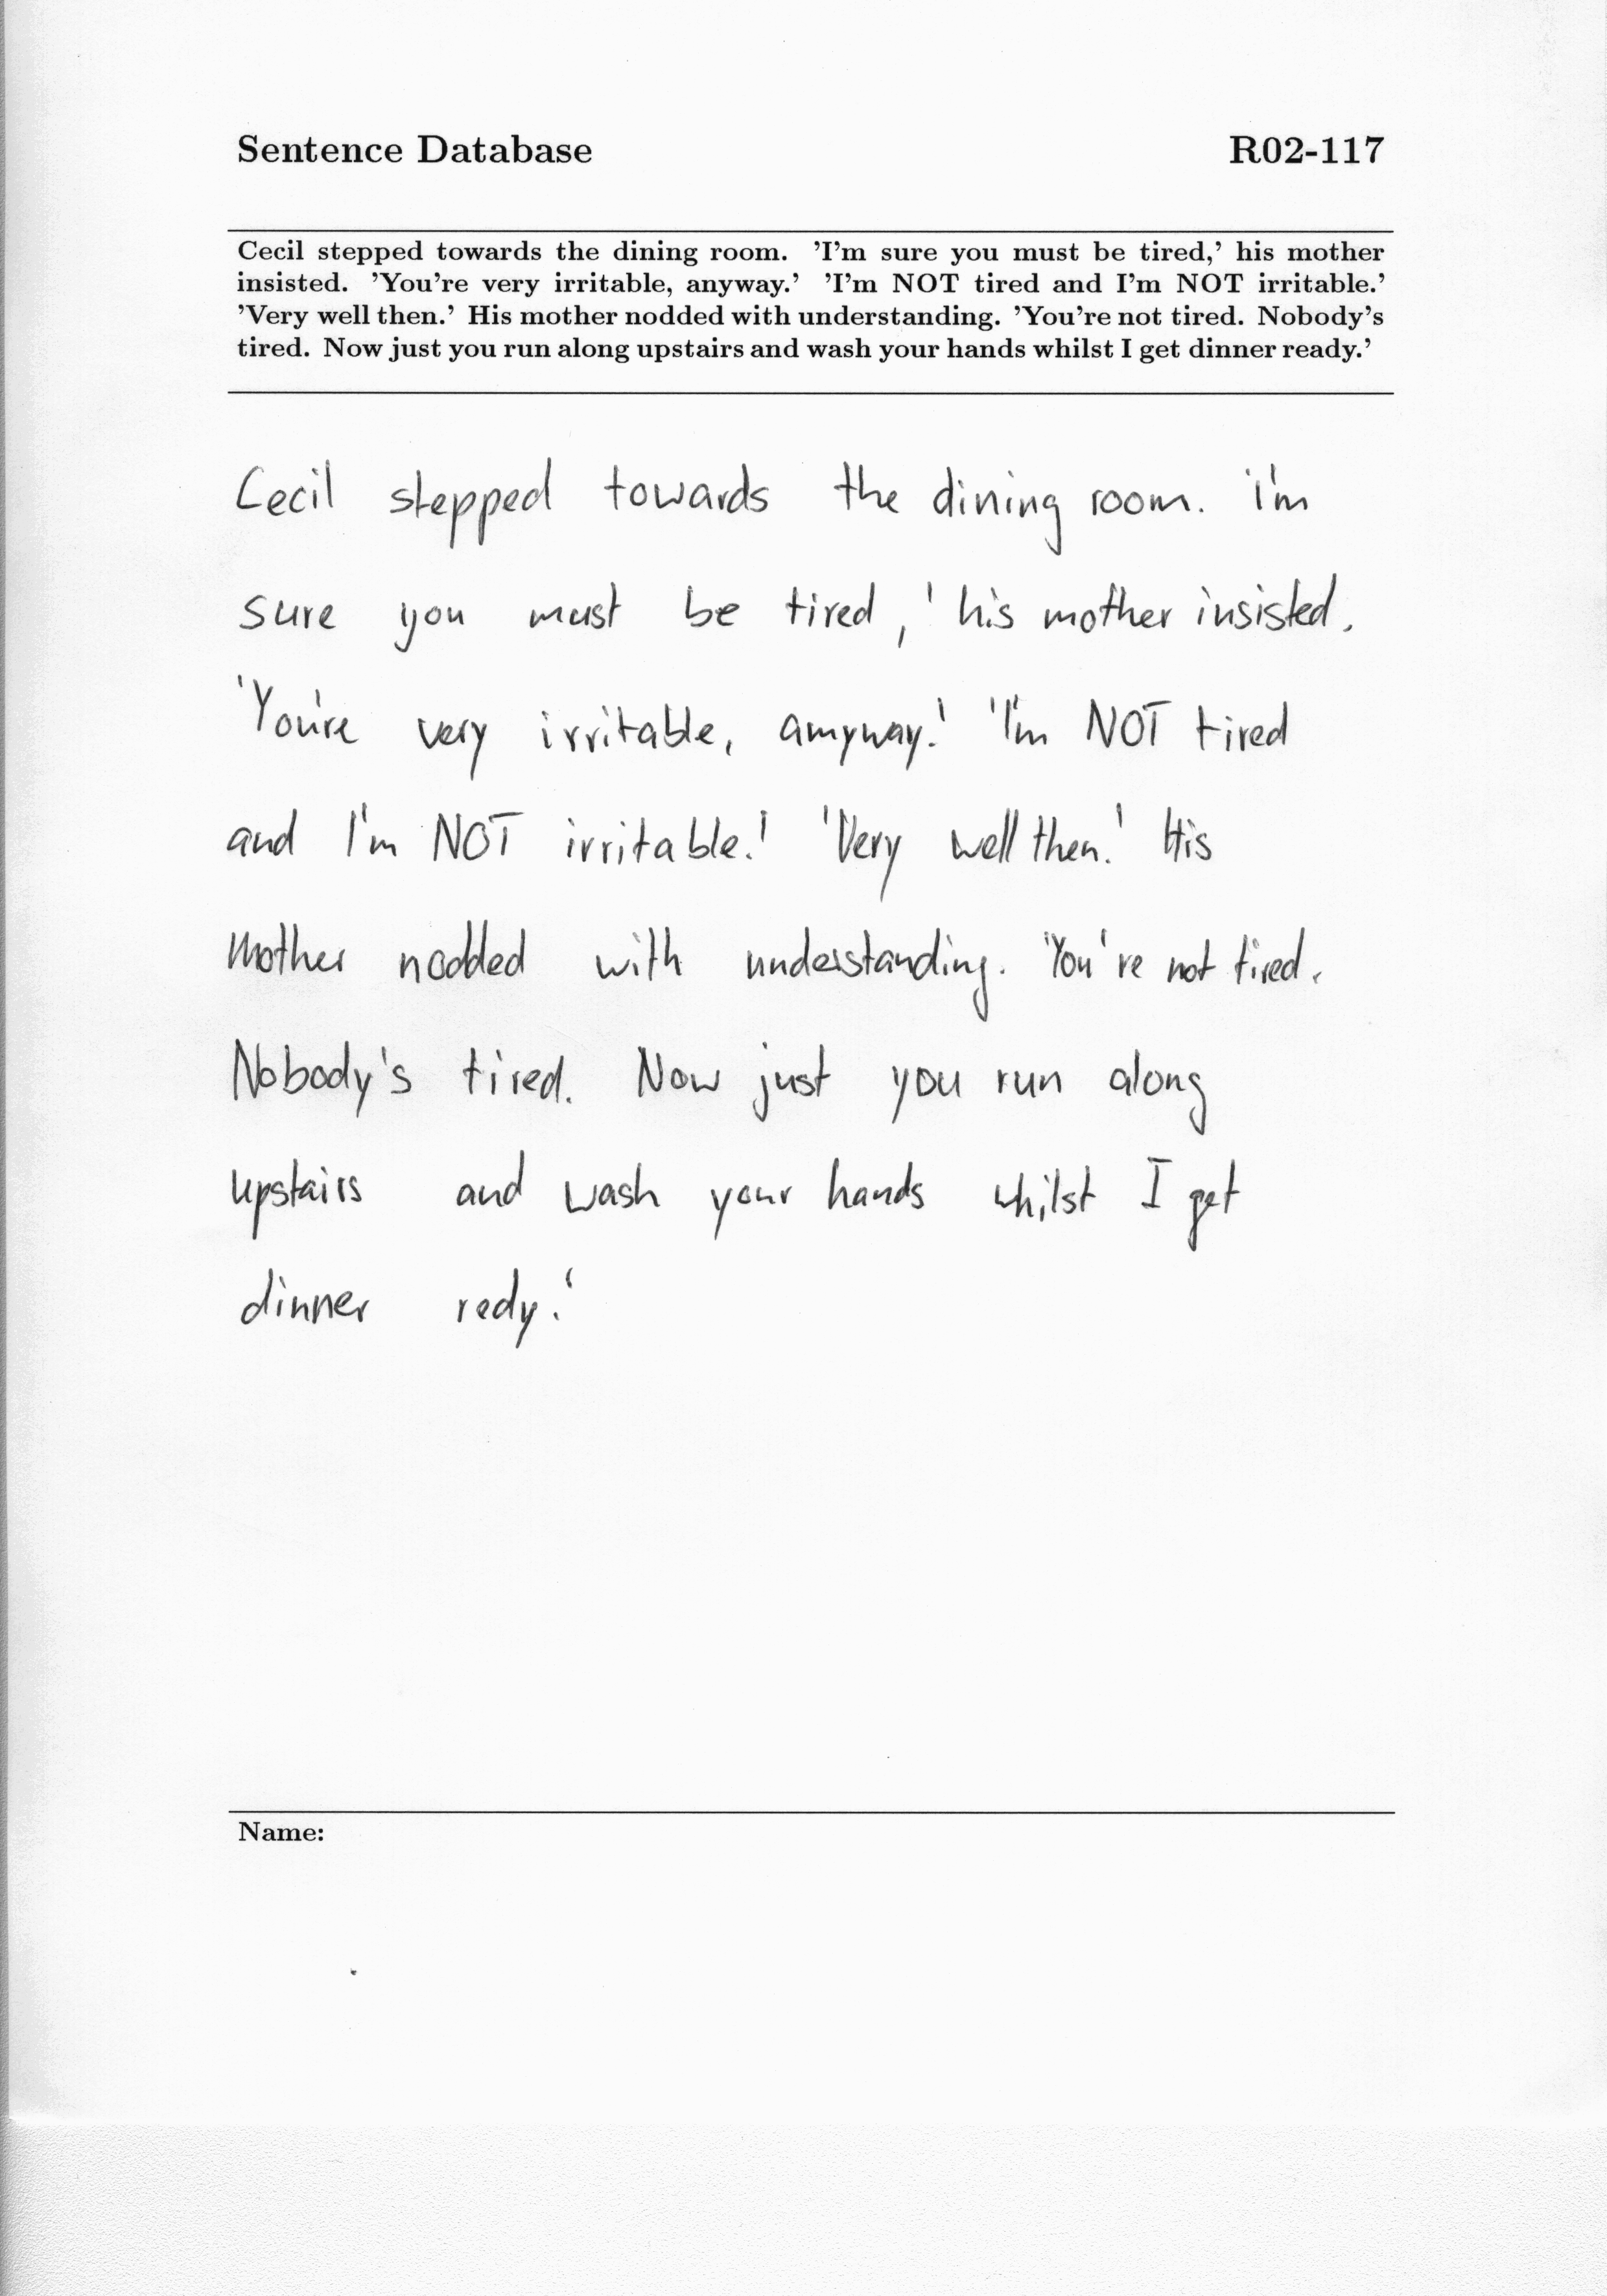 Sentence Database R02-117
Cecil stepped towards the dining room. 'I'm sure you must be tired,' his mother
insisted. 'You're very irritable, anyway.' 'I'm NOT tired and I'm NOT irritable.'
'Very well then.' His mother nodded with understanding. 'You're not tired. Nobody's
tired. Now just you run along upstairs and wash your hands whilst I get dinner ready.'
Cecil stepped towards the dining room. 'I'm
sure you must be tired,' his mother insisted.
'You're very irritable, amyway.' 'I'm NOT tired
and I'm NOT irritable.' 'Very well then.' His
mother nodded with understanding. 'You're not tired.
Nobody's tired. Now just you run along
upstairs and wash your hands whilst I get
dinner redy.'
Name: